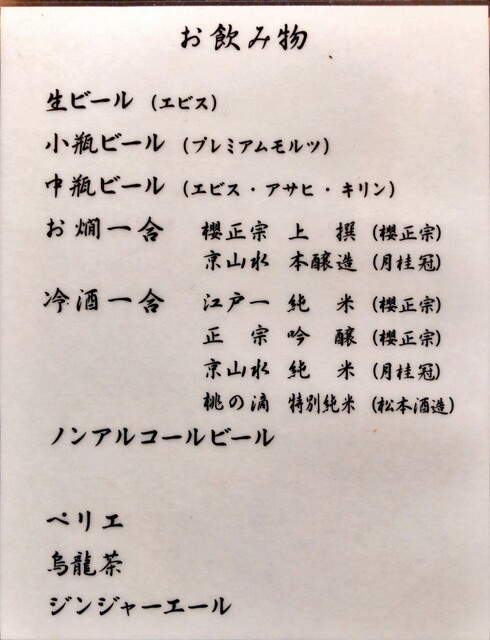 お飲み物
生ビール（エビス）
小瓶ビール（プレミアムモルツ）
中瓶ビール（エビス・アサヒ・キリン）
お燗一合 櫻正宗 上 撰（櫻正宗）
京山水 本醸造（月桂冠）
冷酒一合 江戸一 純 米（櫻正宗）
正 宗 吟 醸（櫻正宗）
京山水 純 米（月桂冠）
桃の滴 特別純米（松本酒造）
ノンアルコールビール
ペリエ
烏龍茶
ジンジャーエール